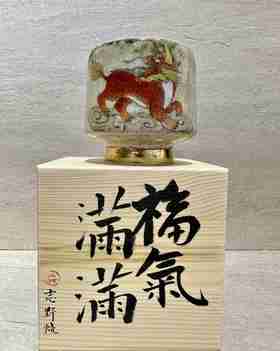 福氣
滿滿
志野燒